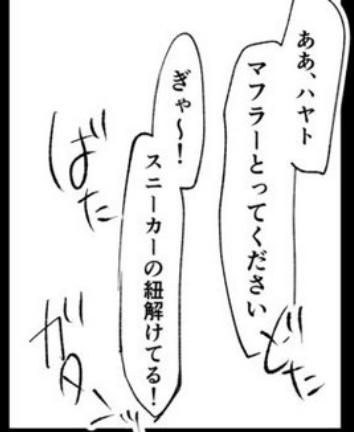 ああ、ハヤト
マフラーとってください
ぎゃ～！
スニーカーの紐解けてる！
どた
ばた
ガタ